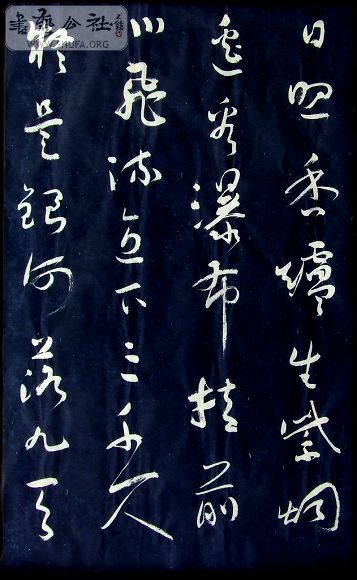 日照香爐生紫烟
遙看瀑布挂前
川飛流直下三千尺
疑是銀河落九天
書藝公社
WWW.SHUFA.ORG